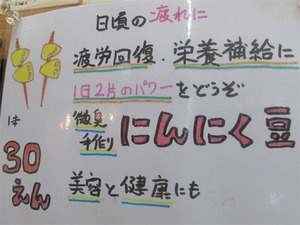 日頃の疲れに
疲労回復.栄養補給に
1日2片のパワーをどうぞ
微臭
手作り
にんにく豆
1本
30
えん
美容と健康にも